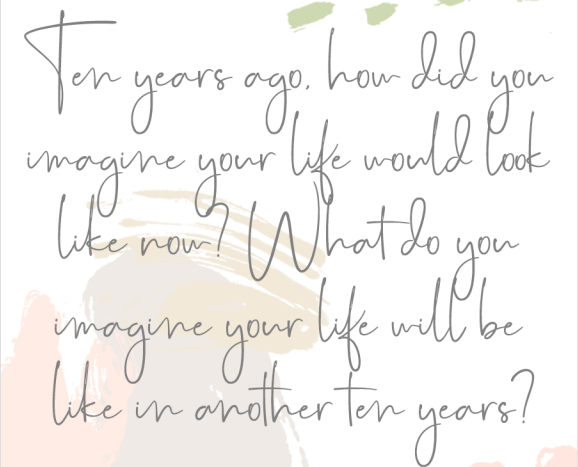 Ten years ago, how did you
imagine your life would look
like now? What do you
imagine your life will be
like in another ten years?